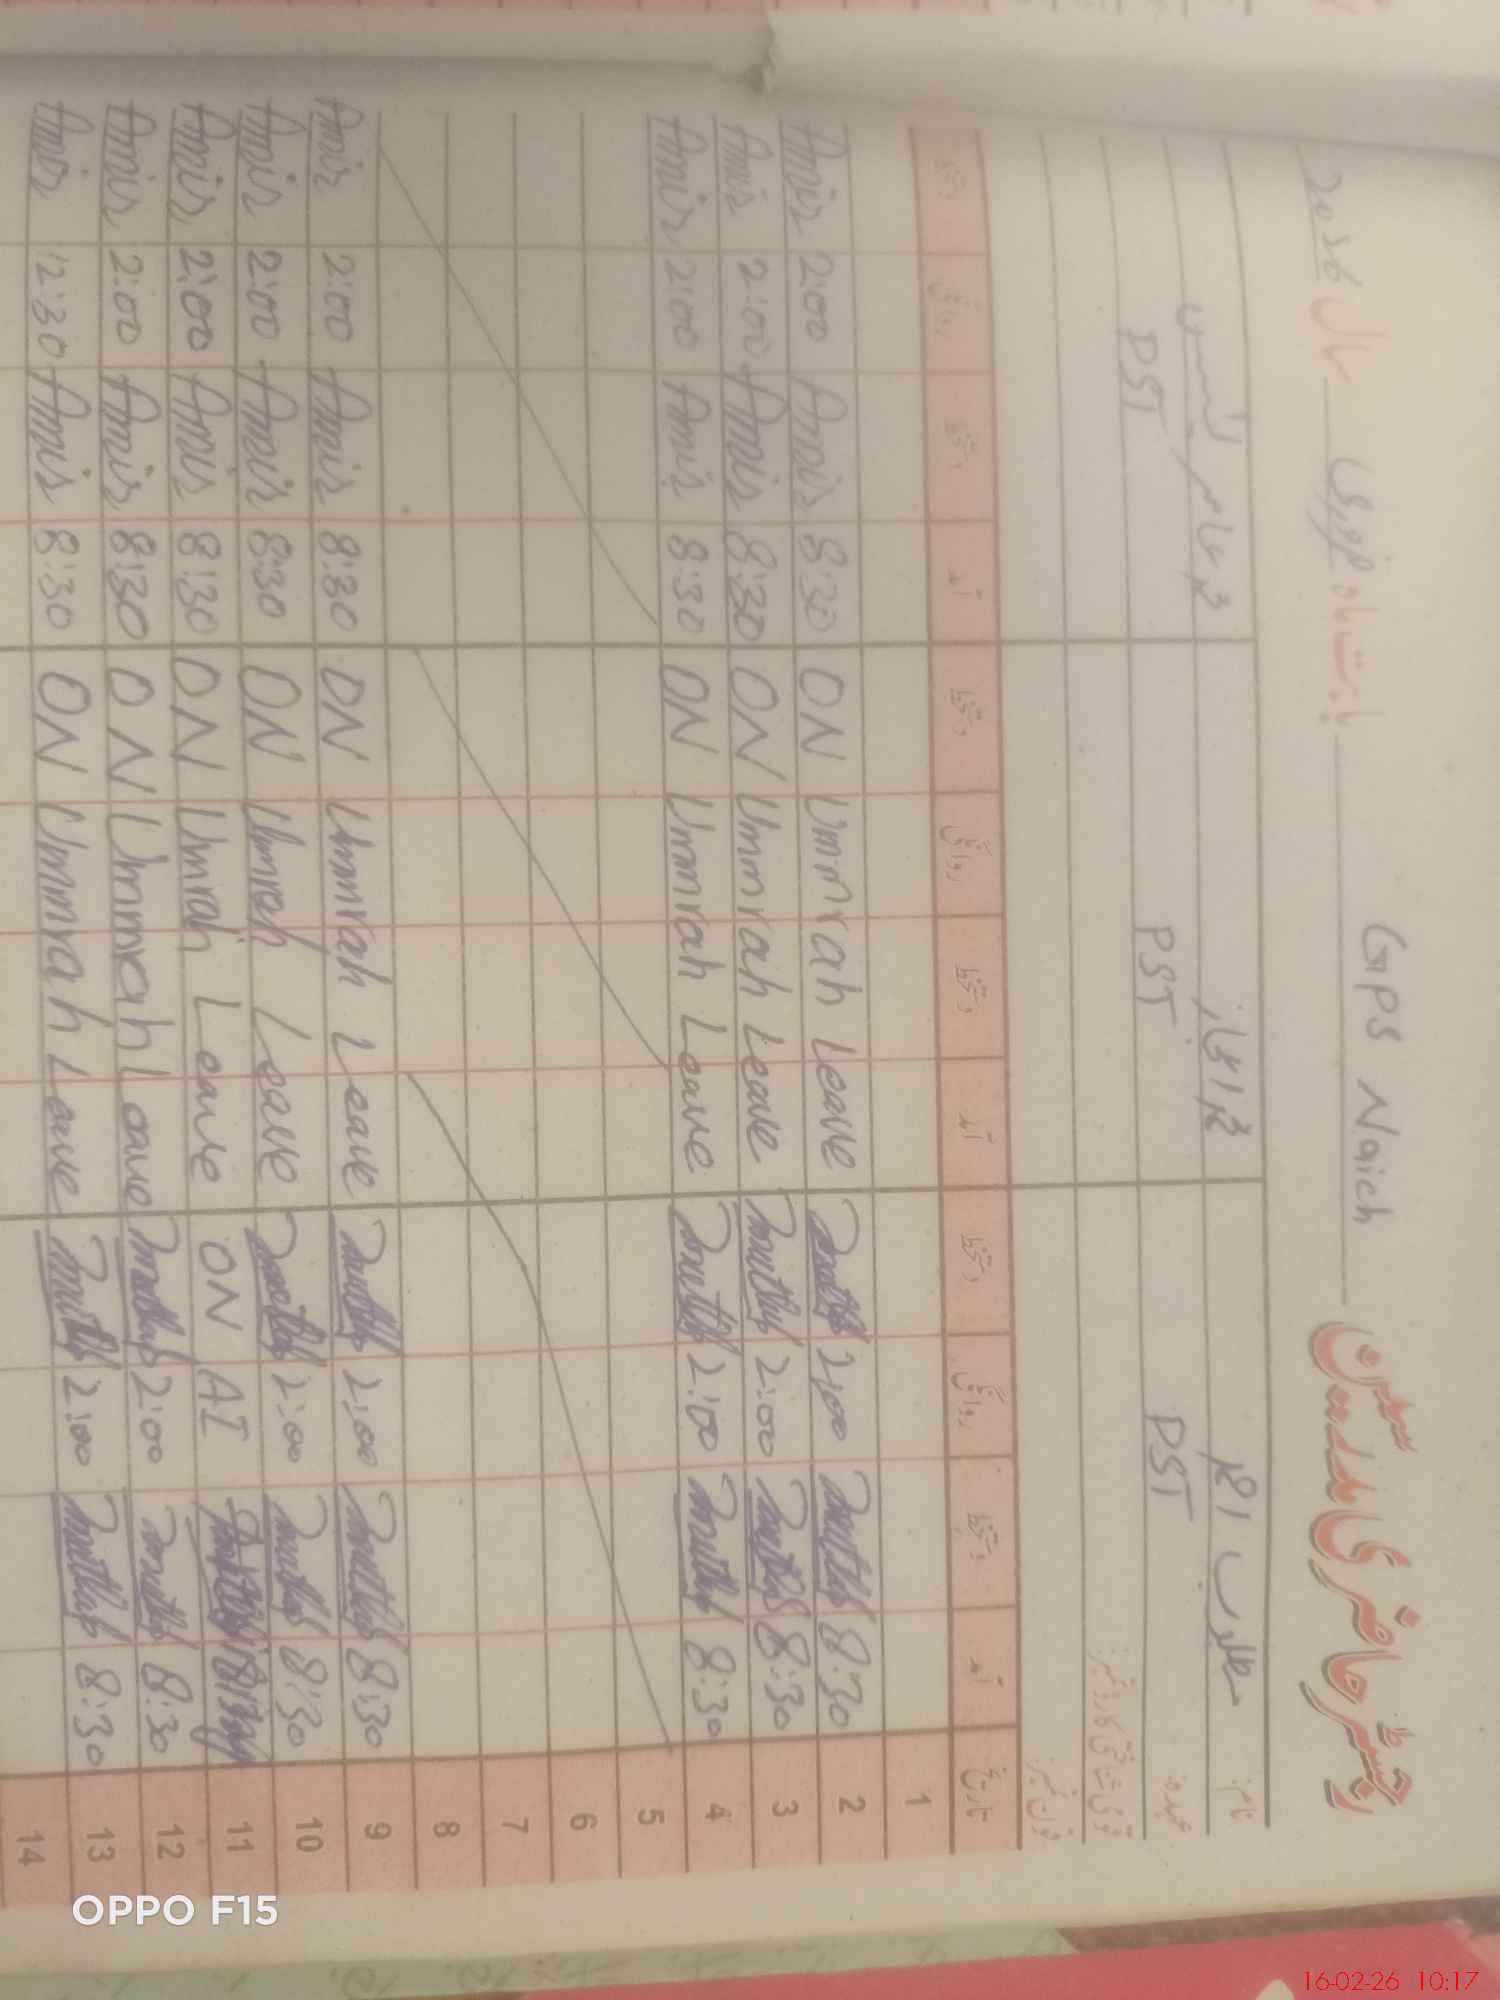 رجسٹر حاضری مدرسین GPS Naich بابت ماہ فروری سال 2026
نام: مطلوب احمد محمد اعجاز محمد عامر
عہدہ: PST PST PST
قومی شناختی کارڈ نمبر:
فون نمبر:
تاریخ آمد دستخط روانگی دستخط آمد دستخط روانگی دستخط آمد دستخط روانگی دستخط
1
2 8:30 2:00 ON Ummrah Leave 8:30 Amir 2:00 Amir
3 8:30 2:00 ON Ummrah Leave 8:30 Amir 2:00 Amir
4 8:30 2:00 ON Ummrah Leave 8:30 Amir 2:00 Amir
5
6
7
8
9 8:30 2:00 ON Ummrah Leave 8:30 Amir 2:00 Amir
10 8:30 2:00 ON Umrah Leave 8:30 Amir 2:00 Amir
11 ON Umrah Leave 8:30 Amir 2:00 Amir
12 8:30 2:00 ON Ummrah Leave 8:30 Amir 2:00 Amir
13 8:30 2:00 ON Ummrah Leave 8:30 Amir 12:30 Amir
14
OPPO F15
16-02-26 10:17